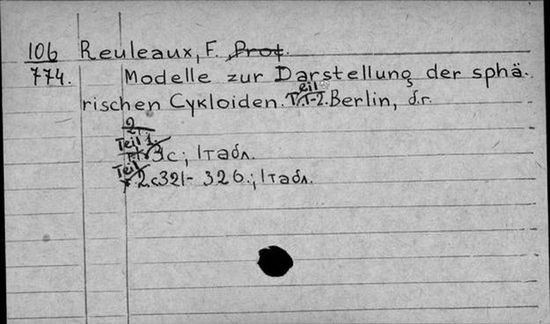 106 Reuleaux, F. Prof.
774. Modelle zur Darstellung der sphä-
rischen Cykloiden. Teil 1-2. Berlin, d.r.
2
Teil 1. 3c; 1 табл.
Teil 2 c 321-326.; 1 табл.